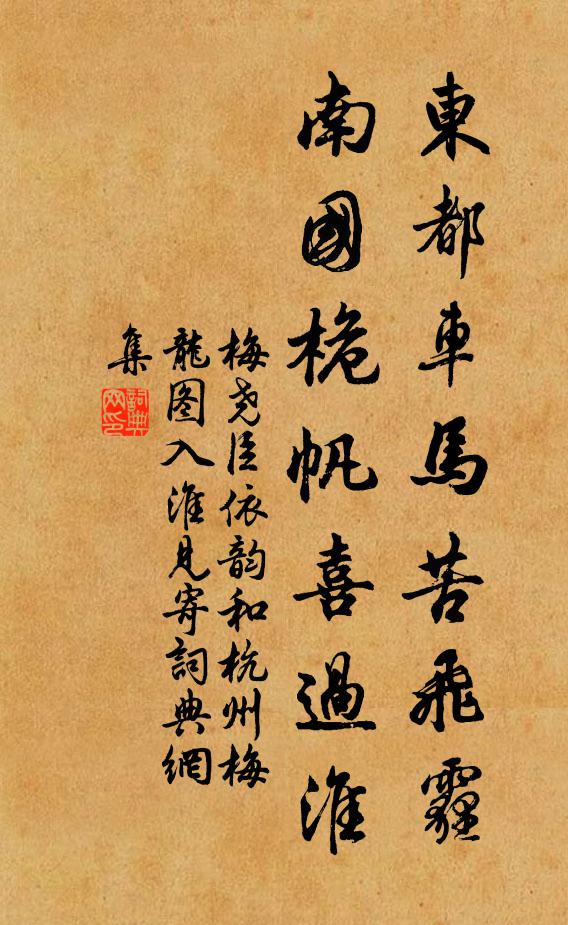 東都車馬苦飛霾
南國桅帆喜過淮
梅尧臣依韵和杭州梅
龍图入淮見寄詞典網
集
詞典網印